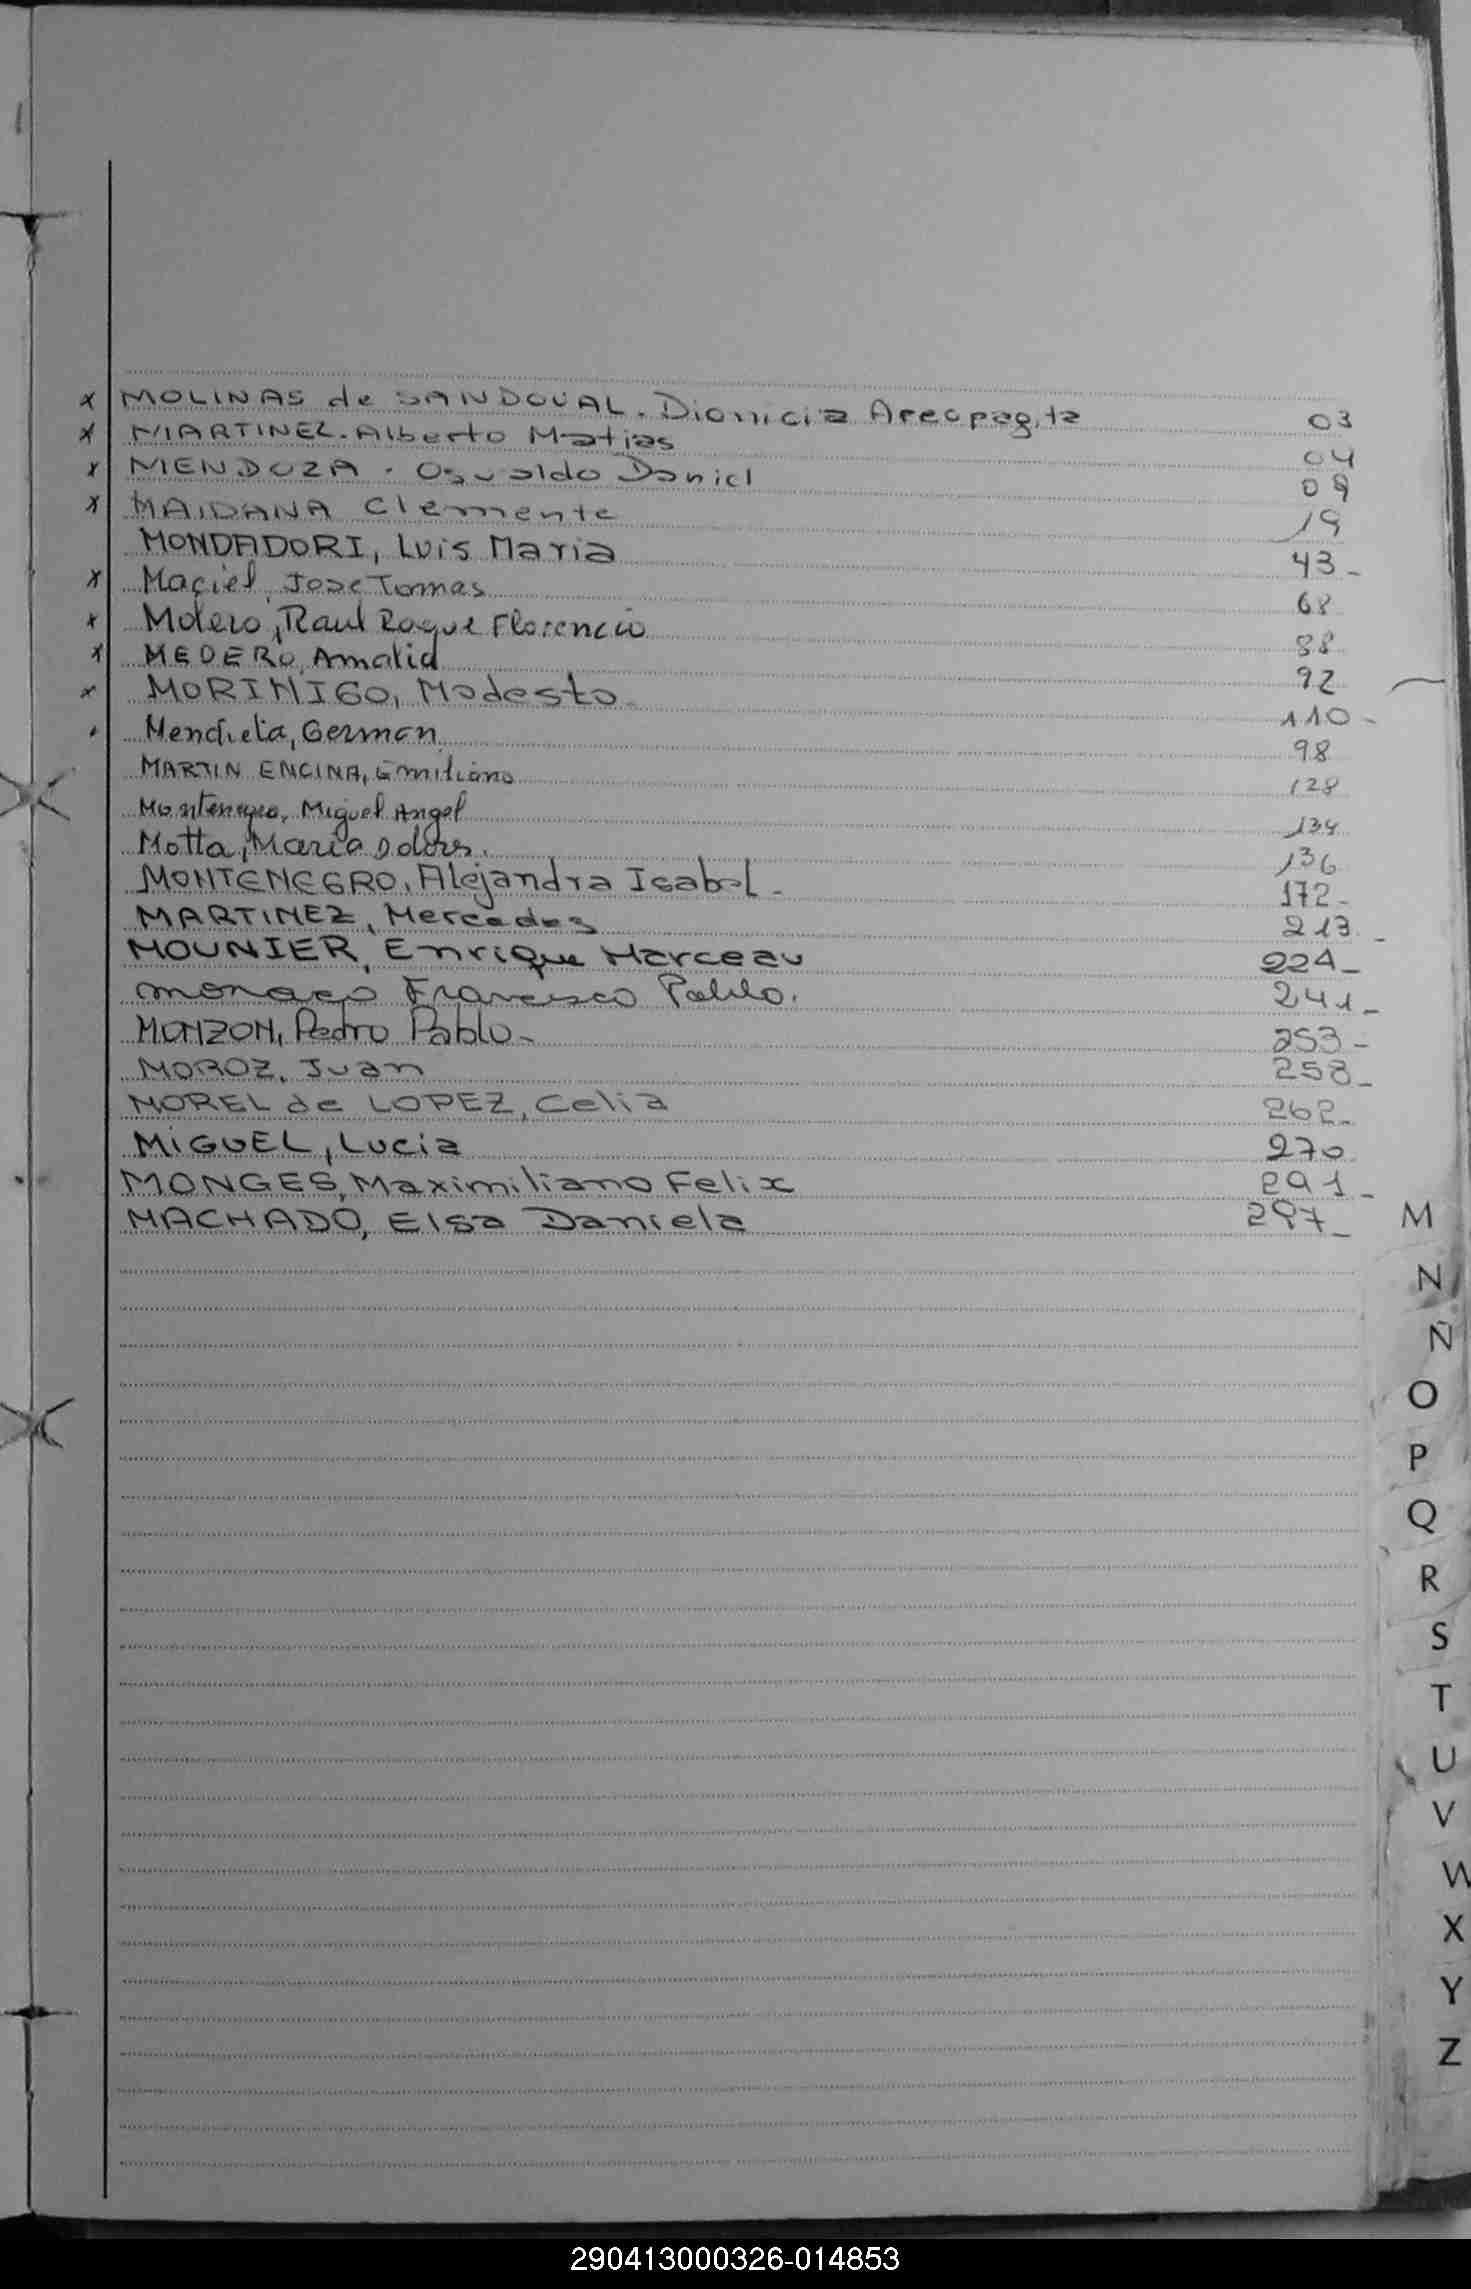 x MOLINAS de SANDOVAL. Dionicia Areopagita 03
x MARTINEZ. Alberto Matias 04
x MENDOZA. Osvaldo Daniel 09
x MAIDANA Clemente 19
MONDADORI, Luis Maria 43-
x Maciel, Jose Tomas 68
x Molero, Raul Roque Florencio 88
x MEDERO, Amalia 92
x MORINIGO, Modesto. 110-
Mendieta, German 98
MARTIN ENCINA, Emiliano 128
Montenegro, Miguel Angel 134
Motta, Maria Dolores. 136
MONTENEGRO, Alejandra Isabel- 172-
MARTINEZ, Mercedes 213-
MOUNIER, Enrique Marceau 224-
monaco Francisco Pablo. 241-
MONZON, Pedro Pablo- 253-
MOROZ, Juan 258-
MOREL de LOPEZ, Celia 262-
MIGUEL, Lucia 270
MONGES, Maximiliano Felix 291-
MACHADO, Elsa Daniela 297-
M
N
Ñ
O
P
Q
R
S
T
U
V
W
X
Y
Z
290413000326-014853